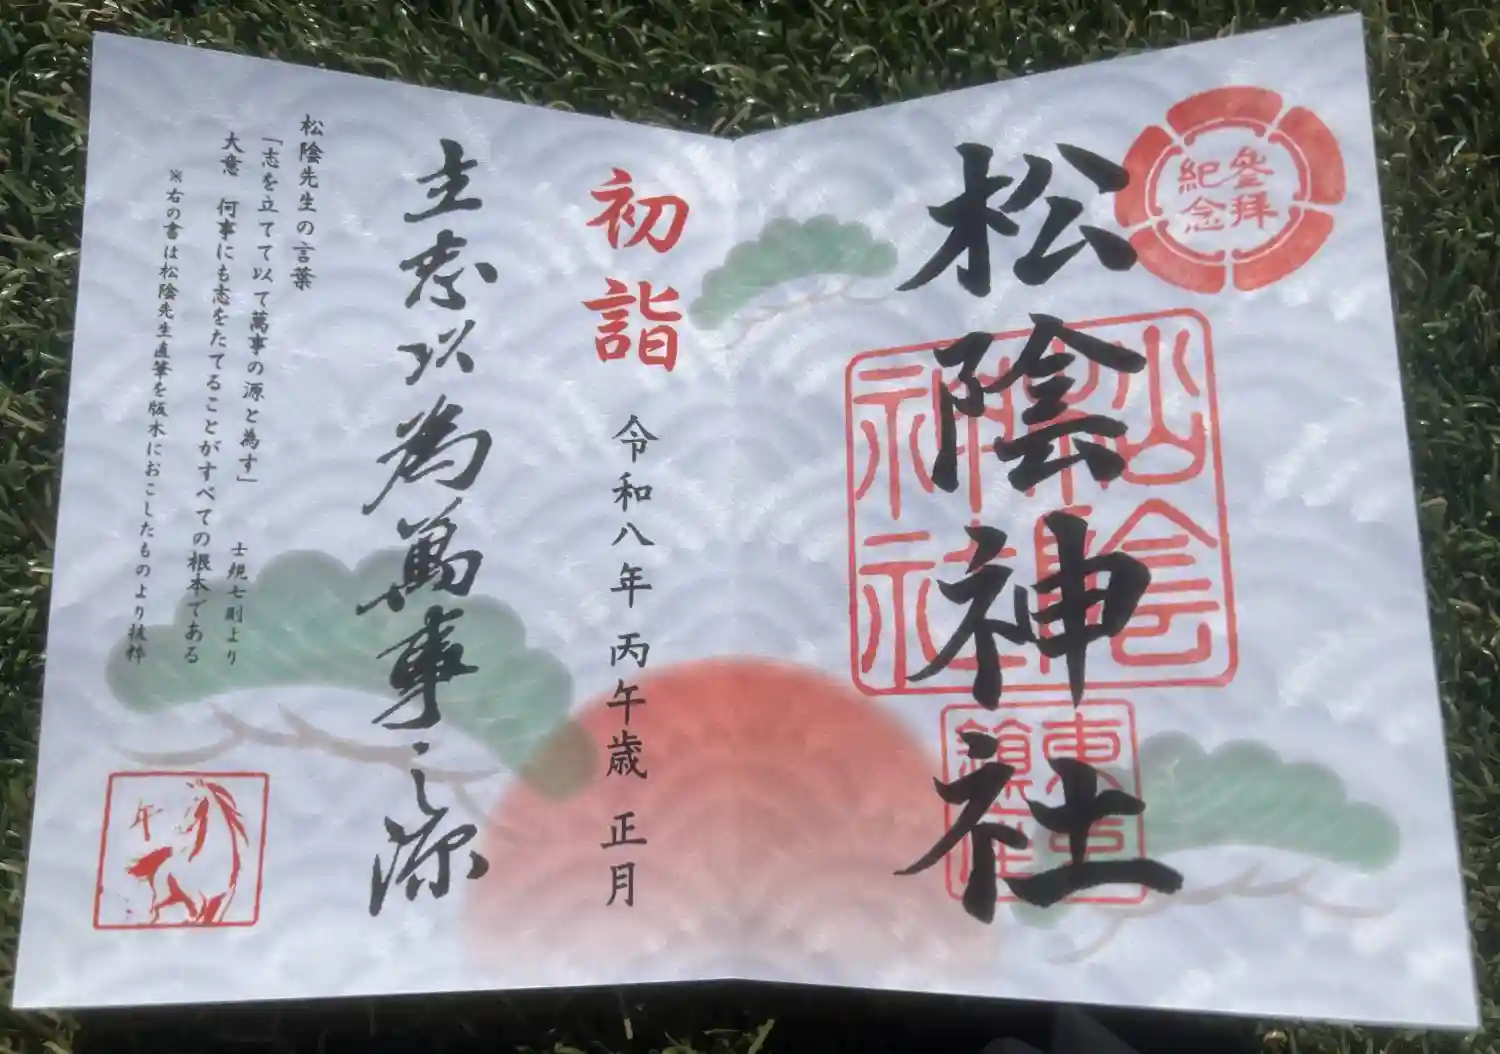 參拜
紀念
松陰神社
松陰
神社
東京
鎮座
初詣
令和八年 丙午歳 正月
立志以為萬事之源
松陰先生の言葉
「志を立てて以て萬事の源と為す」
士規七則より
大意 何事にも志をたてることがすべての根本である
※右の書は松陰先生直筆を版木におこしたものより抜粋
午